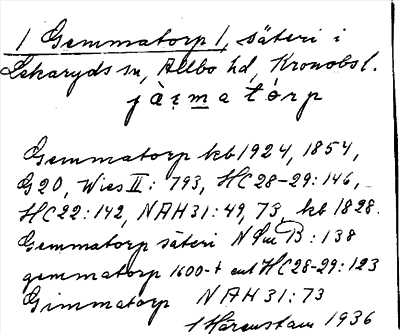 1 Gemmatorp 1, säteri i
Lekaryds sn, Allbo hd, Kronobs l.
jä̀ṃmatórp
Gemmatorp kb 1924, 1854,
G20, Wies II: 793, HC28-29:146,
HC22:142, NAH31:49, 73, kb 1828.
Gemmatorp säteri N Sm B:138
gemmatorp 1600-t enl HC28-29:123
Gimmatorp NAH31:73
1936